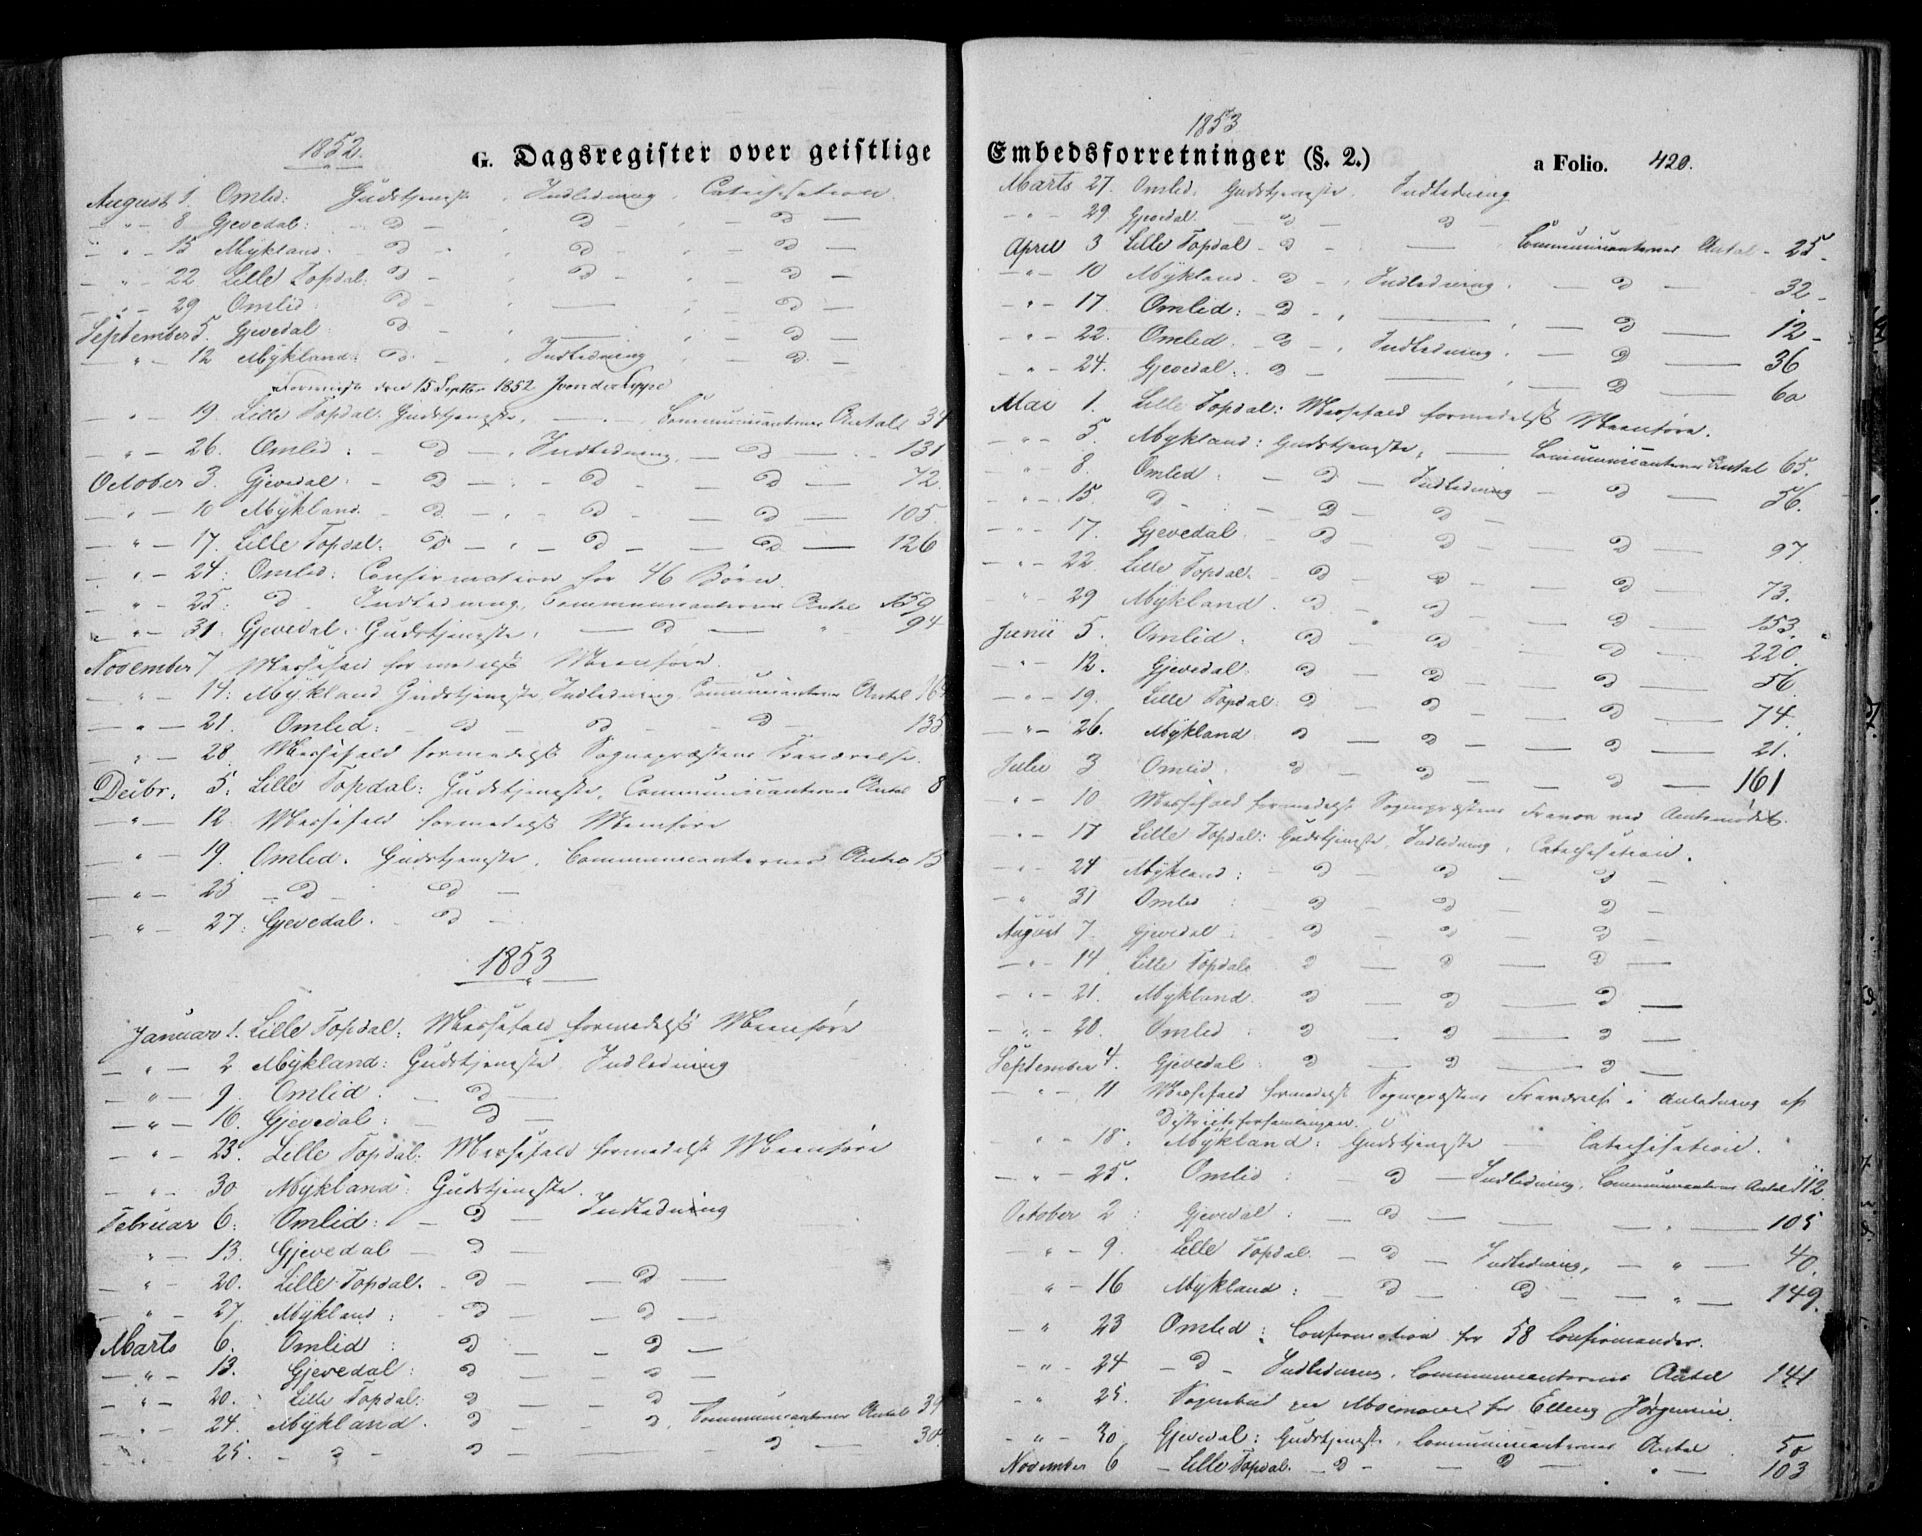 1852.
G. Dagsregister over geistlige
August 1. Omlid: Gudstjeneste, Indledning, Catechisation.
— " — 8 Gjevedal: — d — , d — , — d —
— " — 15 Mykland. — d — , d — , — d —
— " — 22 Lille Topdal: d — , d — — d —
— " — 29 Omlid d — , — — d —
September 5. Gjevedal: d — , — , — d —
— " — 12 Mykland: d — , Indledning — d —
den 15 Septbr 1852
— " — 19. Lille Topdal. Gudstjeneste, — , Communicanternes Antal 34
— " — 26. Omlid: — d — , Indledning, — d — 131
October 3. Gjevedal: — d — , — d — — d — 72.
— " — 10 Mykland. — d — , — d — — d — 105.
— " — 17. Lille Topdal. d — , — d — — d — 126
— " — 24: Omlid: Confirmation for 46 Børn.
— " — 25: d — Indledning, Communicanternes Antal 159
— " — 31. Gjevedal. Gudstjeneste, — d — " 94
November 7 Messefald formedelst Meenføre.
— " — 14: Mykland Gudstjeneste, Indledning, Communicanternes Antal
— " — 21. Omlid: — d — d — d — 135
— " — 28. Messefald formedelst Sognepræstens Fraværelse.
Decbr. 5. Lille Topdal: Gudstjeneste, Communicanternes Antal 8
— " — 12. Messefald formedelst Meenføre
— " — 19. Omlid. Gudstjeneste, Communicanternes Antal
— " — 25 — d — d —
— " — 27: Gjevedal. — d —
1853
Januar 1. Lille Topdal: Messefald formedelst Meenføre
— " — 2 Mykland: Gudstjeneste, Indledning
— " — 9. Omlid. — d —
— " — 16. Gjevedal: — d —
— " — 23. Lille Topdal: Messefald formedelst Meenføre
— " — 30 Mykland: Gudstjeneste.
Februar 6: Omlid: — d — Indledning
" — 13. Gjevedal — d —
" — 20. Lille Topdal. — d — — d —
— " — 27. Mykland: — d — — d —
Marts 6. Omlid: d — — d —
— " — 13. Gjevedal: d — — d —
— " — 20. Lille Topdal: d — — d —
— " — 24. Mykland. d — — d, Communicanternes Antal 39
— " — 25. — d — d — — d — 30
1853
Embedsforretninger (§. 2.) a Folio. 420.
Marts 27. Omlid. Gudstjeneste, Indledning
— " — 29. Gjevedal. — d — d —
April 3 Lille Topdal — d — — Communicanternes Antal — 25 —
— " — 10 Mykland — d — , Indledning, — d — 32 —
— " — 17. Omlid: — d — , — , — d — 12 —
— " — 22. Omled. — d — , Indledning, — d — 36
— " — 24. Gjevedal: d — — — d — 60
Mai 1. Lille Topdal: Messefald formedelst Meenføre.
— " — 5. Mykland: Gudstjeneste, — Communicanternes Antal 65.
— " — 8. Omled: — d — Indledning — d — 56.
— " — 15. d — — d — d —
— " — 17. Gjevedal — d — d — — d — 97.
— " — 22. Lille Topdal. — d — d — — d — 73.
— " — 29 Mykland. d — d — — d — 153.
Junii 5. Omlid: d — d — — d — 220.
— " — 12. Gjevedal d — d — — d — 56.
— " — 19. Lille Topdal: d — d — — d — 74.
— " — 26. Mykland d — d — — d — 21.
Julii 3 Omlid. d — d — — d — 161
— " — 10 Messefald formedelst Sognepræstens Fravær ved Amtsmødet.
— " — 17 Lille Topdal: Gudstjeneste, Indledning, Catechisation.
— " — 24 Mykland: — d — d — d —
— " 31 Omlid: — d — d — d —
August 7. Gjevedal: — d — d — d —
— " — 14 Lille Topdal d — d — d —
— " — 21. Mykland. d — d — d —
— " — 28. Omlid d — d — d —
September 4. Gjevedal: d — d — d —
— " — 11 Messefald formedelst Sognepræstens Fraværelse i Anledning af
Districtsforsamlingen.
" — 18. Mykland: Gudstjeneste — Catechisation.
— " — 25. Omlid: — d — Indledning, Communicanternes Antal 112.
October 2: Gjevedal: — d — — " — 105
— " — 9. Lille Topdal. — d — Indledning, — " — 40.
" — 16 Mykland: — d — d — — " — 149.
— " 23 Omlid: Confirmation for 58 Confirmander.
— " — 24 — d — Indledning, Communicanternes Antal 141
" 25. Sognebud for Elleng Jørgensen.
— " — 30. Gjevedal: Gudstjeneste, Communicanternes Antal 50
November 6 — Lille Topdal. — d — — d — " — 103